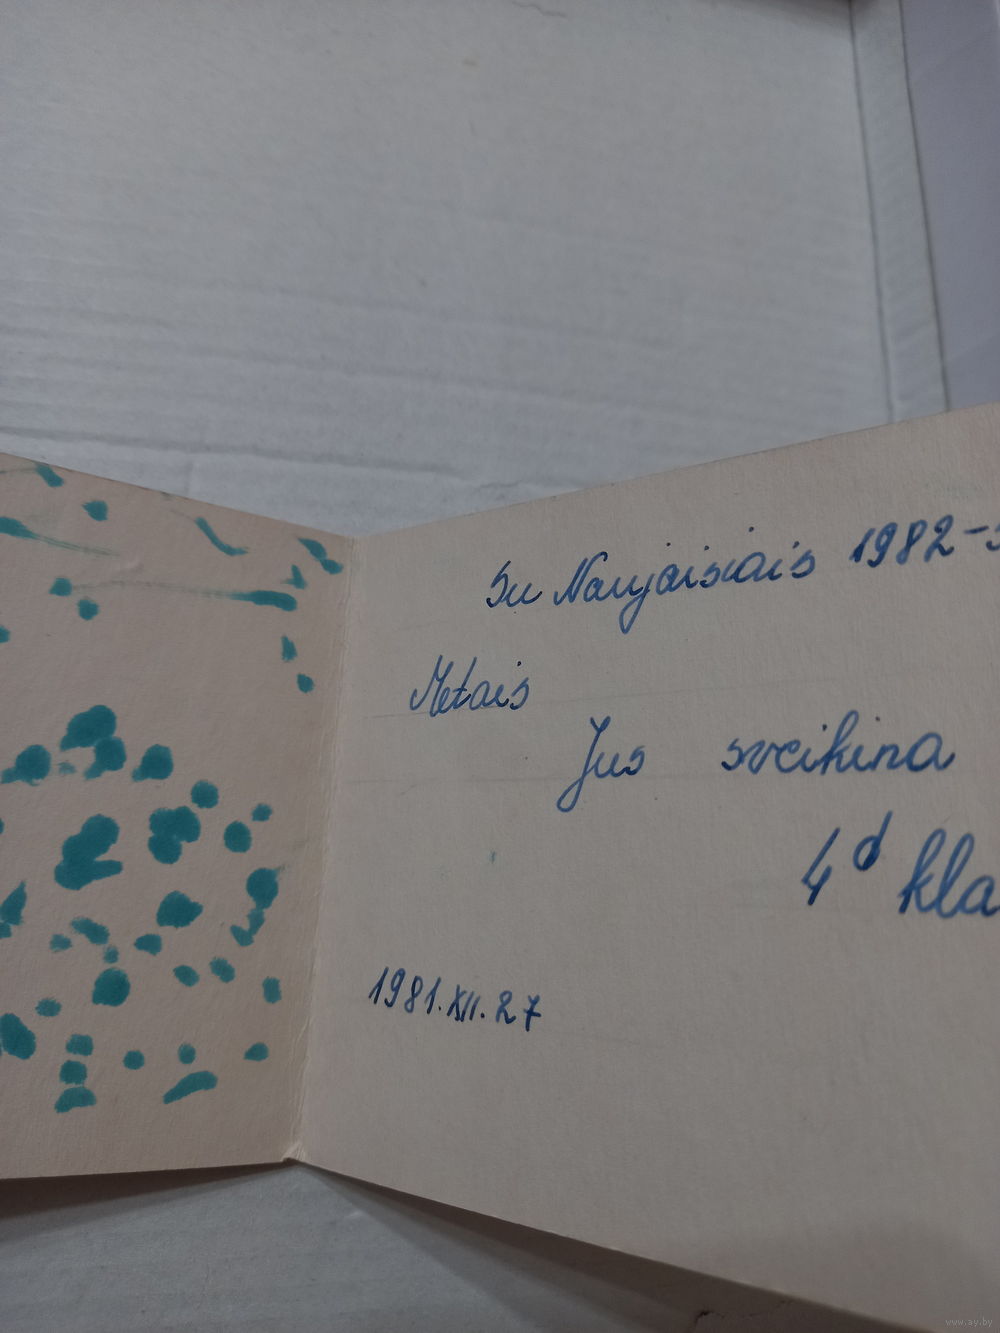 Su Naujaisiais 1982-
Metais
Jus sveikina
4d kla
1981.XII.27
www.ay.by